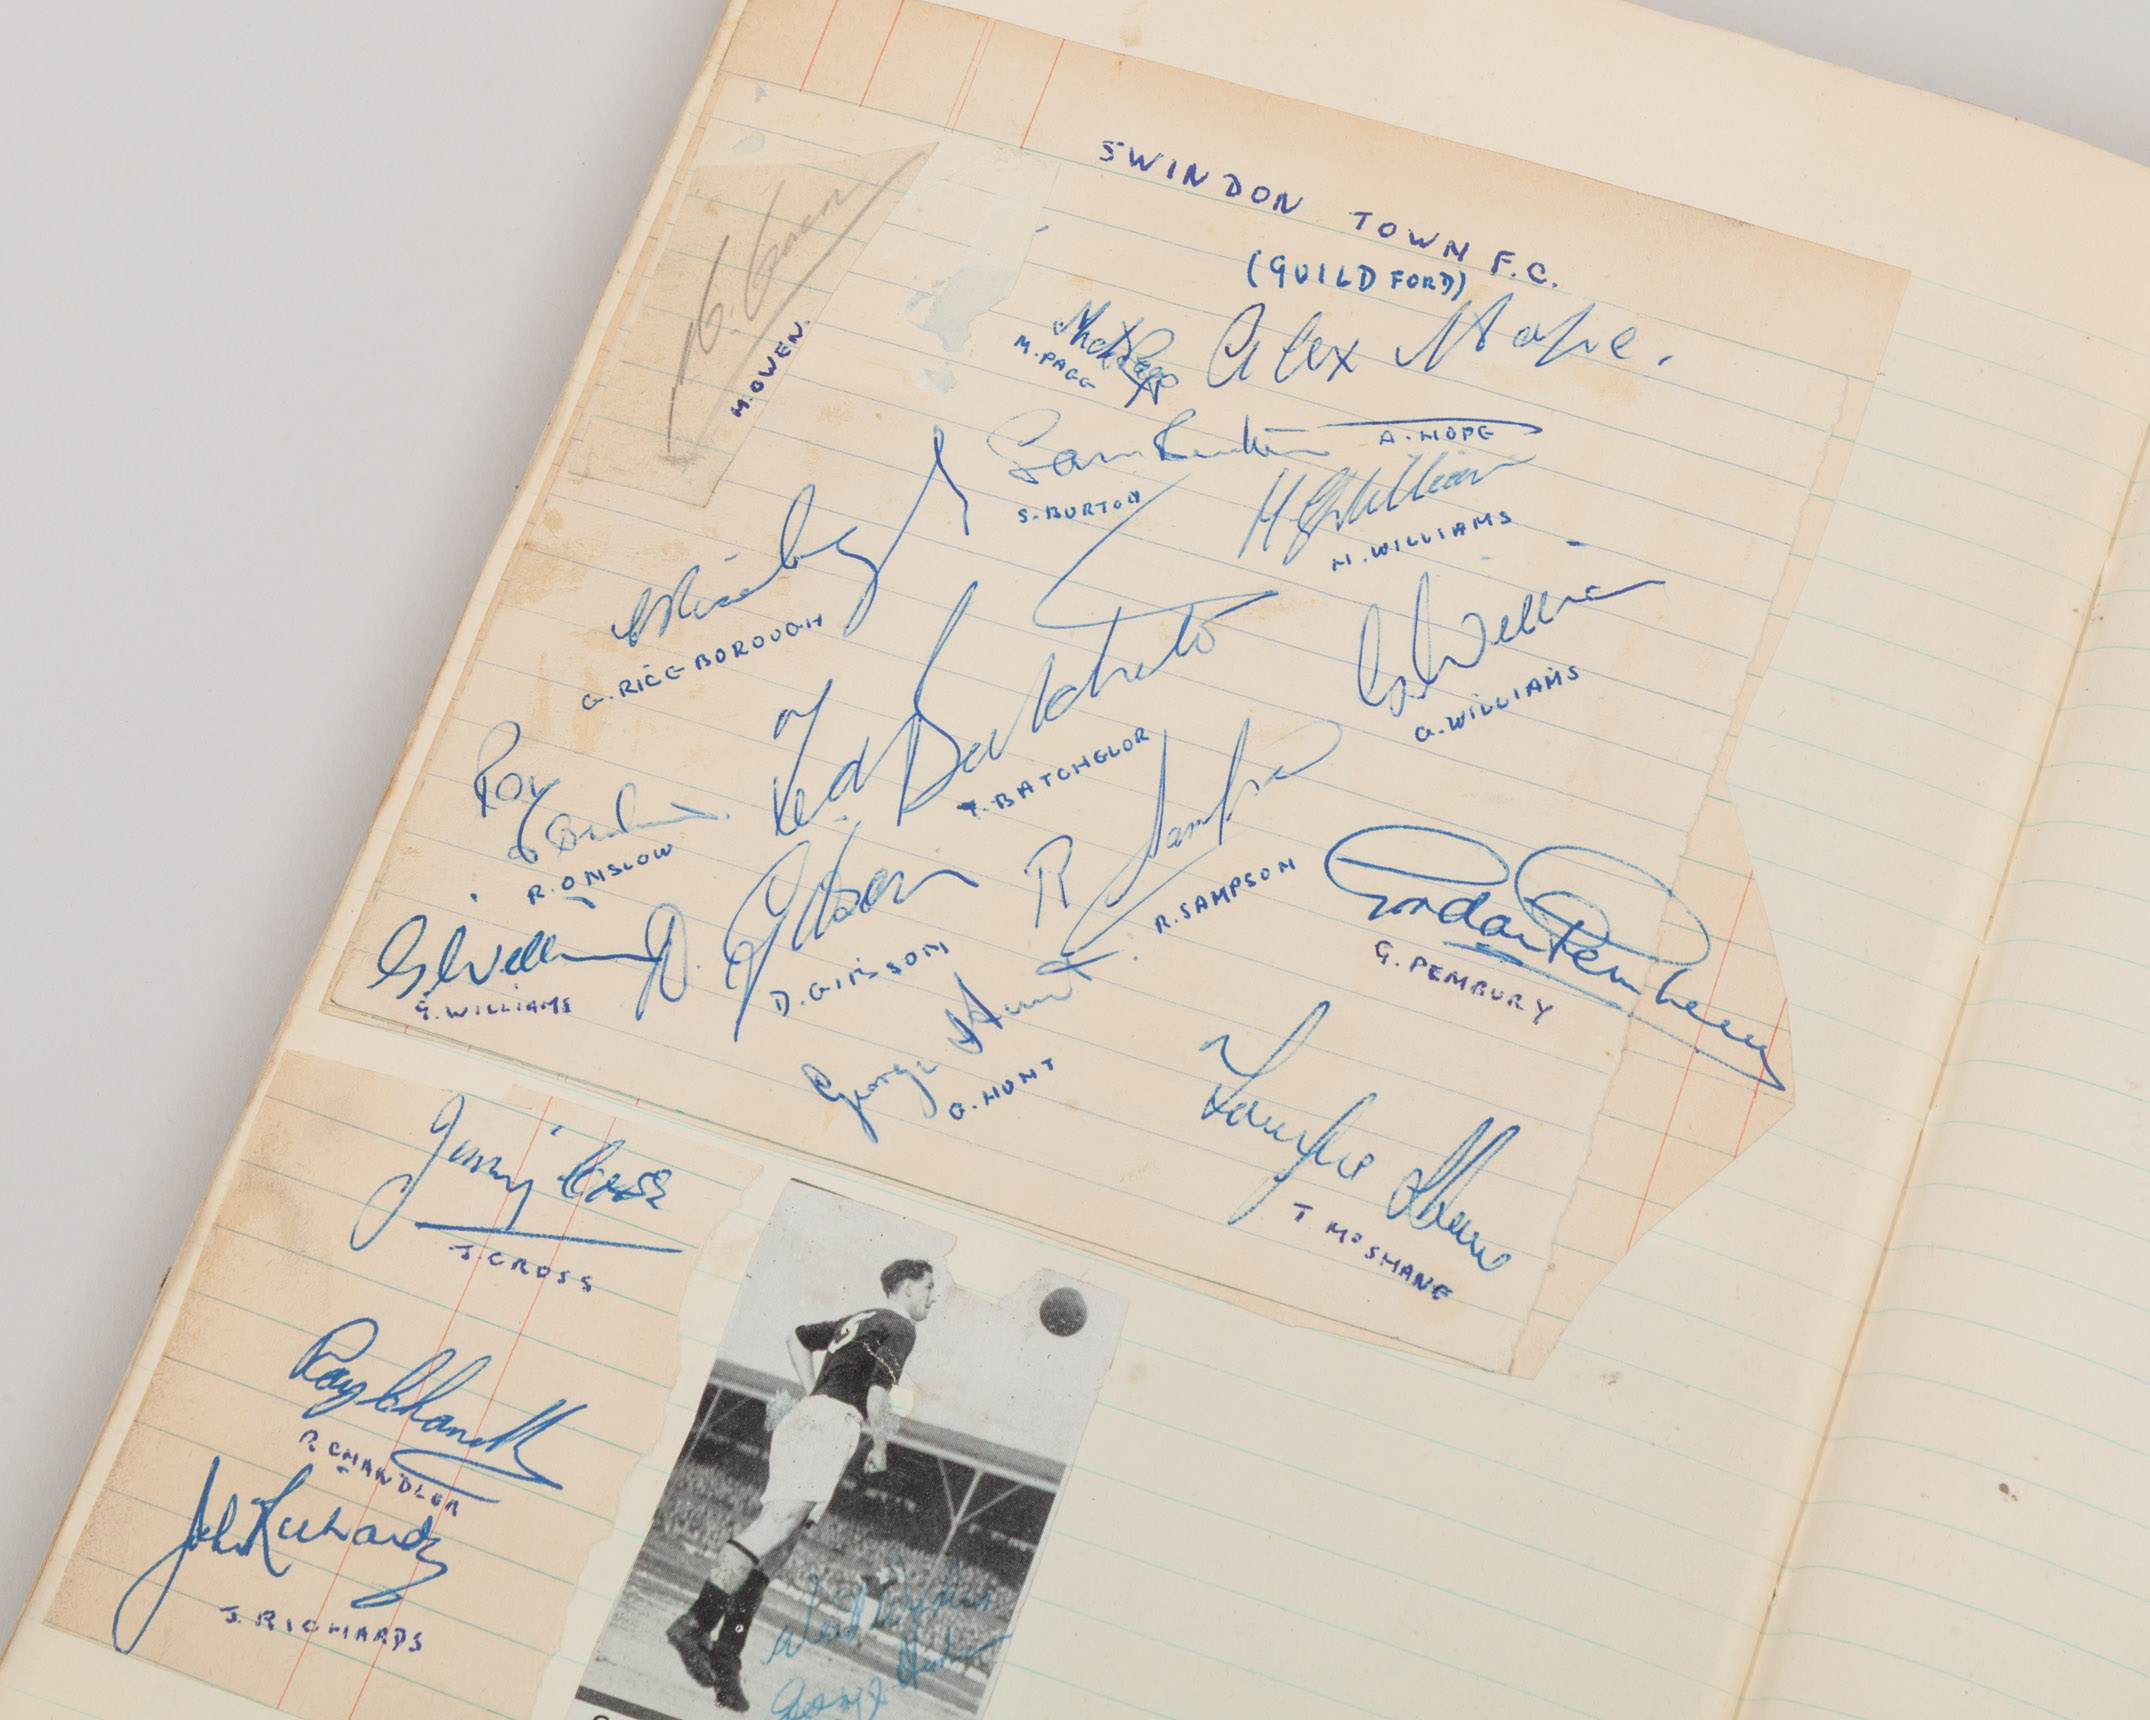 SWINDON TOWN F.C.
(GUILDFORD)
M. Owen
M. OWEN.
M. PAGG
Alex Hope.
A. HOPE
Sam Burton
S. BURTON
H G Williams
H. WILLIAMS
G. RICEBOROUGH
G Williams
G. WILLIAMS
Ted Batchelor
T. BATCHELOR
Roy Onslow
R. ONSLOW
R Sampson
R. SAMPSON
G Williams
G. WILLIAMS
D. Gibson
D. GIBSON
Gordon Pembery
G. PEMBURY
George Hunt
G. HUNT
T McSHANE
Jimmy Cross
J. CROSS
Ray Chandler
R. CHANDLER
John Richards
J. RICHARDS